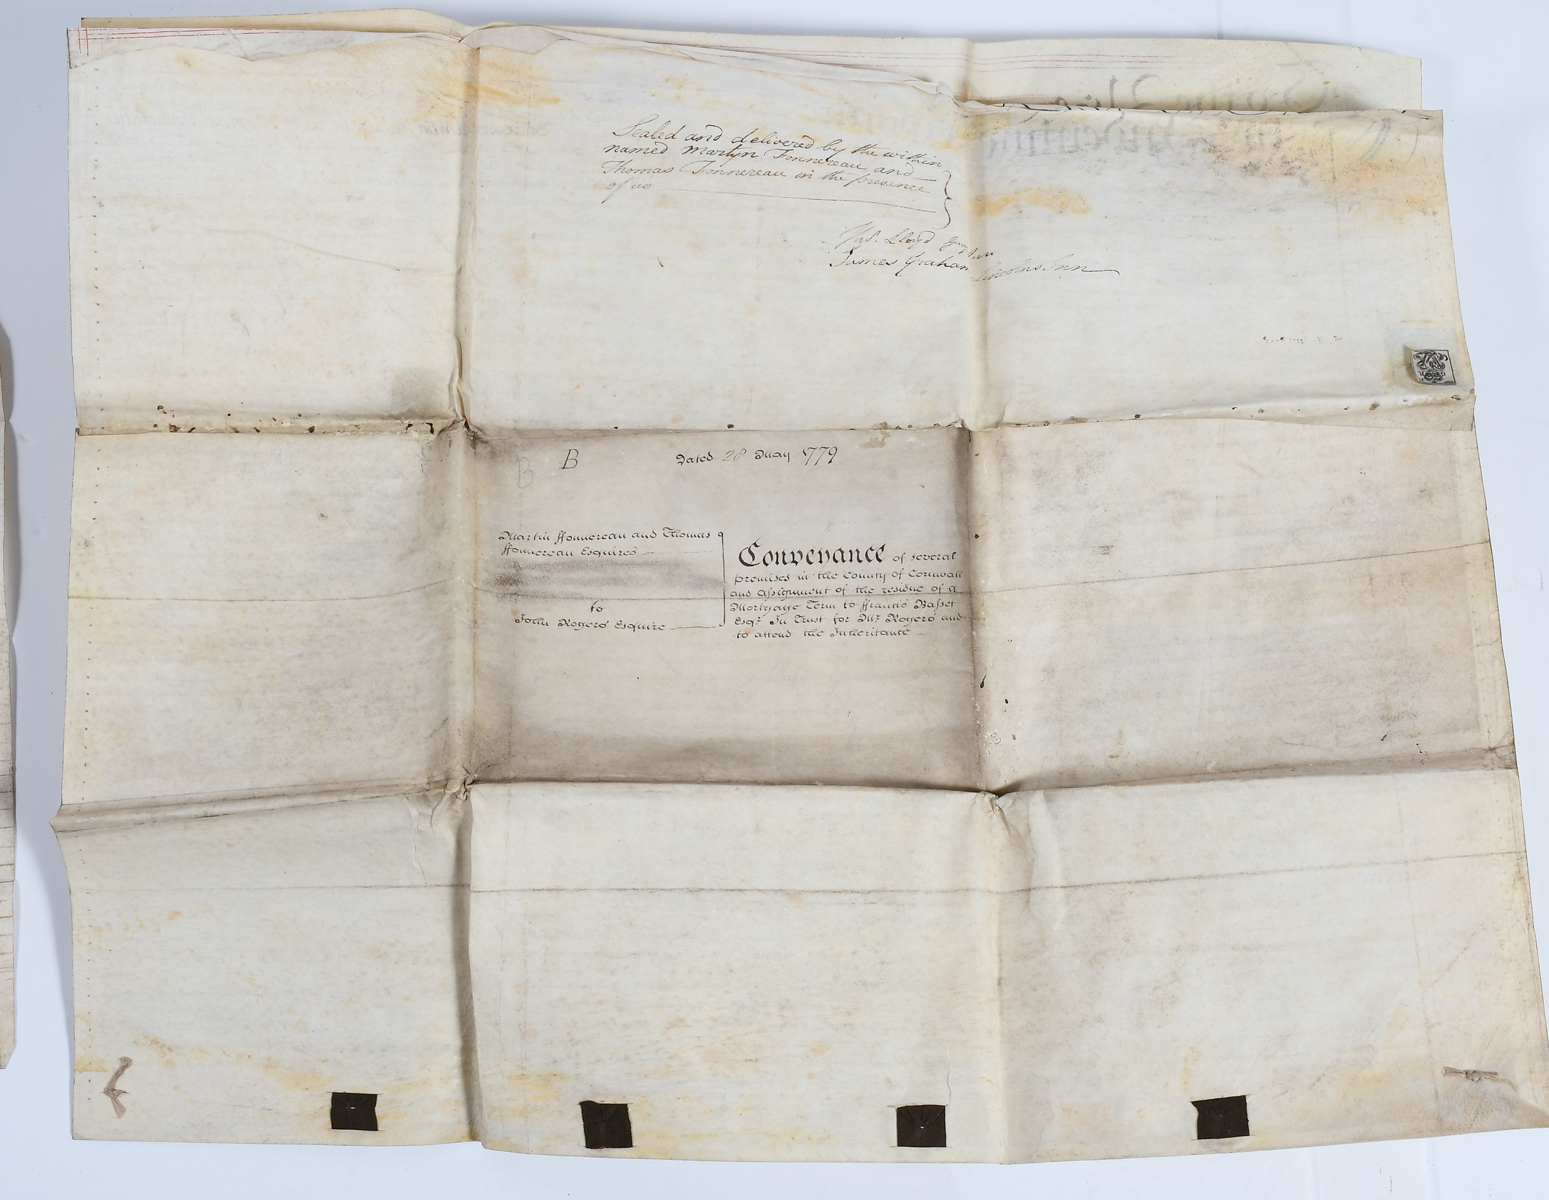 Sealed and delivered by the within
named Martyn Fonnereau and
Thomas Fonnereau in the presence
of us
Lloyd Grays Inn
James Graham Lincolns Inn
B B
Dated 28 May 1779
Martin ffonnereau and Thomas
ffonnereau Esquires
to
John Rogers Esquire
Conveyance of several
premises in the County of Cornwall
and assignment of the residue of a
Mortgage Term to ffrancis Basset
Esqr. In Trust for Mr. Rogers and
to attend the Inheritance